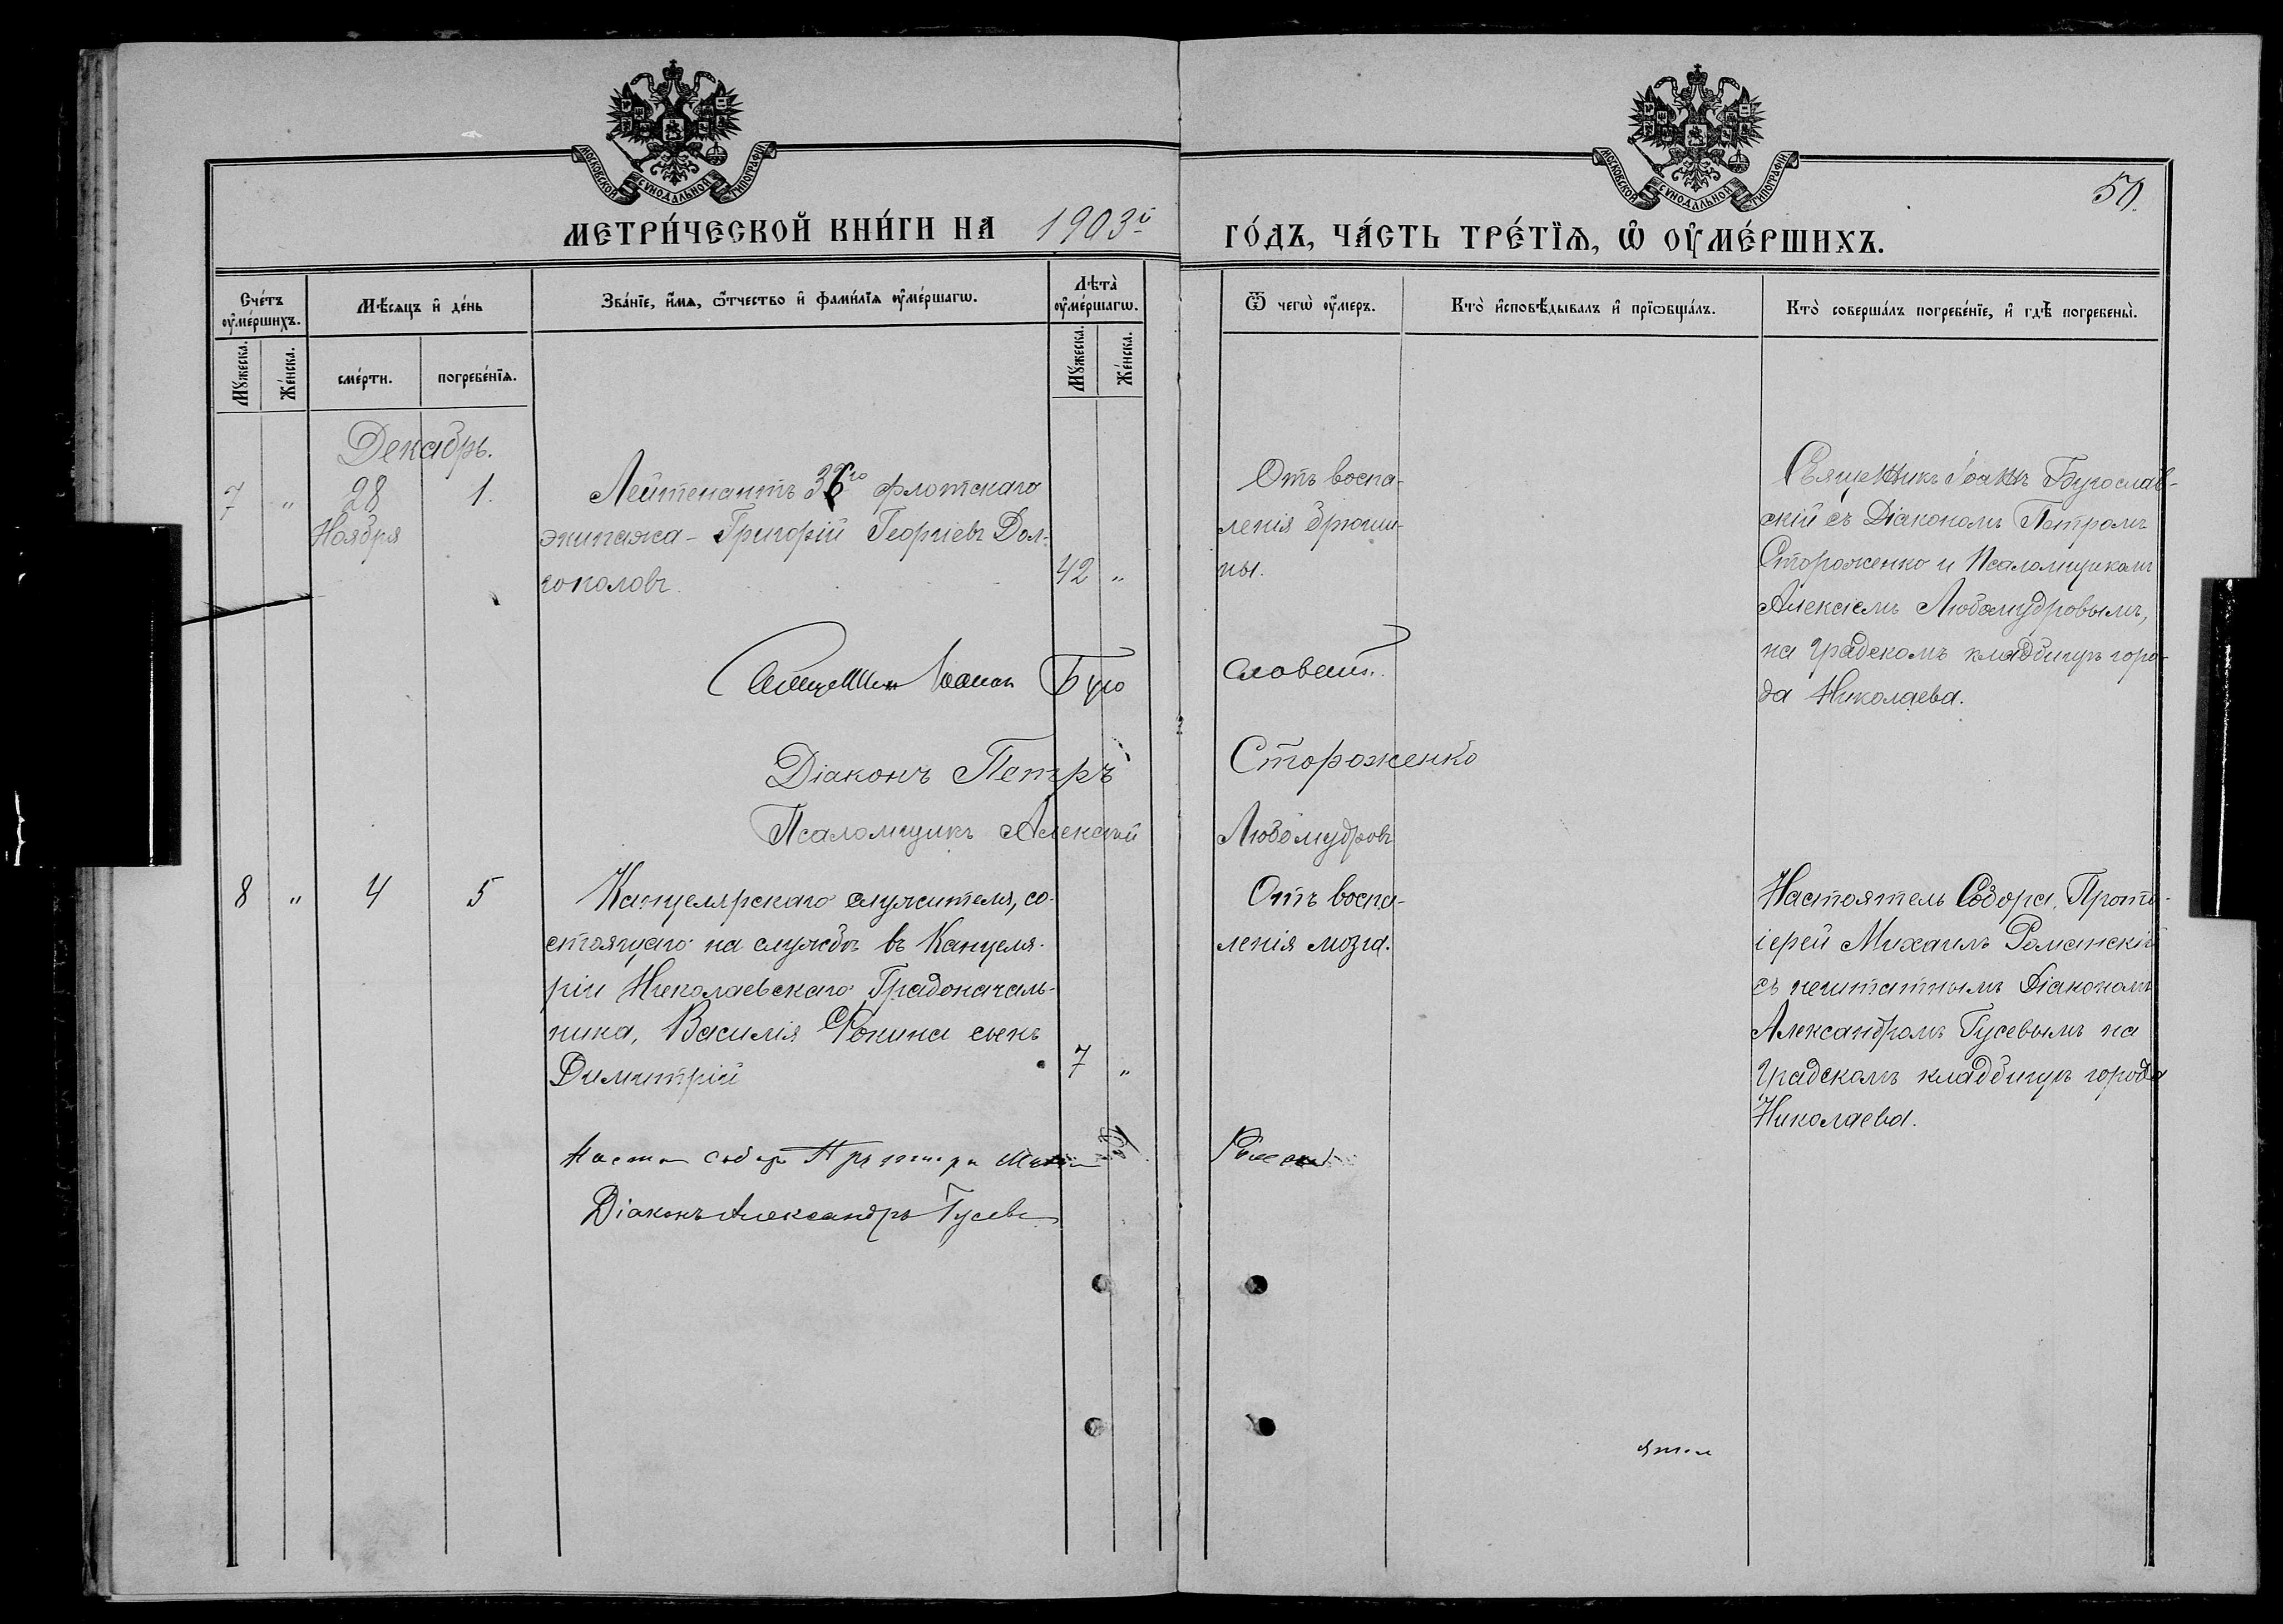 МОСКОВСКОЙ СѴНОДАЛЬНОЙ ТИПОГРАФІИ
МОСКОВСКОЙ СѴНОДАЛЬНОЙ ТИПОГРАФІИ
50.
МЕТРИ́ЧЕСКОЙ КНИ́ГИ НА 1903й ГО́ДЪ, ЧА́СТЬ ТРЕ́ТЇѦ, Ѡ҆ ОУ҆МЕ́РШИХЪ.
Сче́тъ оу҆ме́ршихъ.
Мꙋ́жеска.
Же́нска.
Мѣ́сѧцъ и҆ де́нь
сме́рти.
погребе́нїѧ.
Зва́нїе, и҆́мѧ, ѻ҆́тчество и҆ фами́лїѧ оу҆ме́ршагѡ.
Лѣта̀ оу҆ме́ршагѡ.
Мꙋ́жеска.
Же́нска.
Ѿ чегѡ̀ оу҆́меръ.
Кто̀ и҆сповѣ́дывалъ и҆ прїѡбща́лъ.
Кто̀ соверша́лъ погребе́нїе, и҆ гдѣ̀ погребены̀.
Декабрь.
7 " 28 1.
Ноября
Лейтенантъ 36го флотскаго
экипажа - Григорій Георгіевъ Дол-
гополовъ. 42 "
Отъ воспа-
ленія брюши-
ны.
Священникъ Іоаннъ Бугослав-
скій съ Діакономъ Петромъ
Стороженко и Псаломщикомъ
Алексіемъ Любомудровымъ,
на градскомъ кладбищѣ горо-
да Николаева.
Священникъ Іоаннъ Буго
Діаконъ Петръ Стороженко
Псаломщикъ Алексій Любомудровъ
8 " 4 5
Канцелярскаго служителя, со-
стоящаго на службѣ въ Канцеля-
ріи Николаевскаго Градоначаль-
ника, Василія Фокина сынъ
Димитрій 7 "
Отъ воспа-
ленія мозга.
Настоятель Собора, Прото-
іерей Михаилъ
съ нештатнымъ Діакономъ
Александромъ Гусевымъ на
градскомъ кладбищѣ города
Николаева.
Діаконъ Александръ Гусевъ